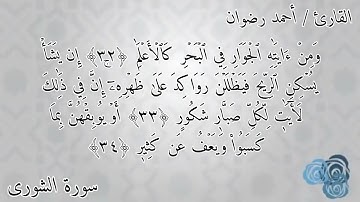 القارئ / أحمد رضوان
وَمِنْ ءَايَٰتِهِ ٱلْجَوَارِ فِي ٱلْبَحْرِ كَٱلْأَعْلَٰمِ ﴿٣٢﴾ إِن يَشَأْ
يُسْكِنِ ٱلرِّيحَ فَيَظْلَلْنَ رَوَاكِدَ عَلَىٰ ظَهْرِهِۦٓ إِنَّ فِي ذَٰلِكَ
لَأٓيَٰتٖ لِّكُلِّ صَبَّارٖ شَكُورٍ ﴿٣٣﴾ أَوْ يُوبِقْهُنَّ بِمَا
كَسَبُواْ وَيَعْفُ عَن كَثِيرٖ ﴿٣٤﴾
سورة الشورى